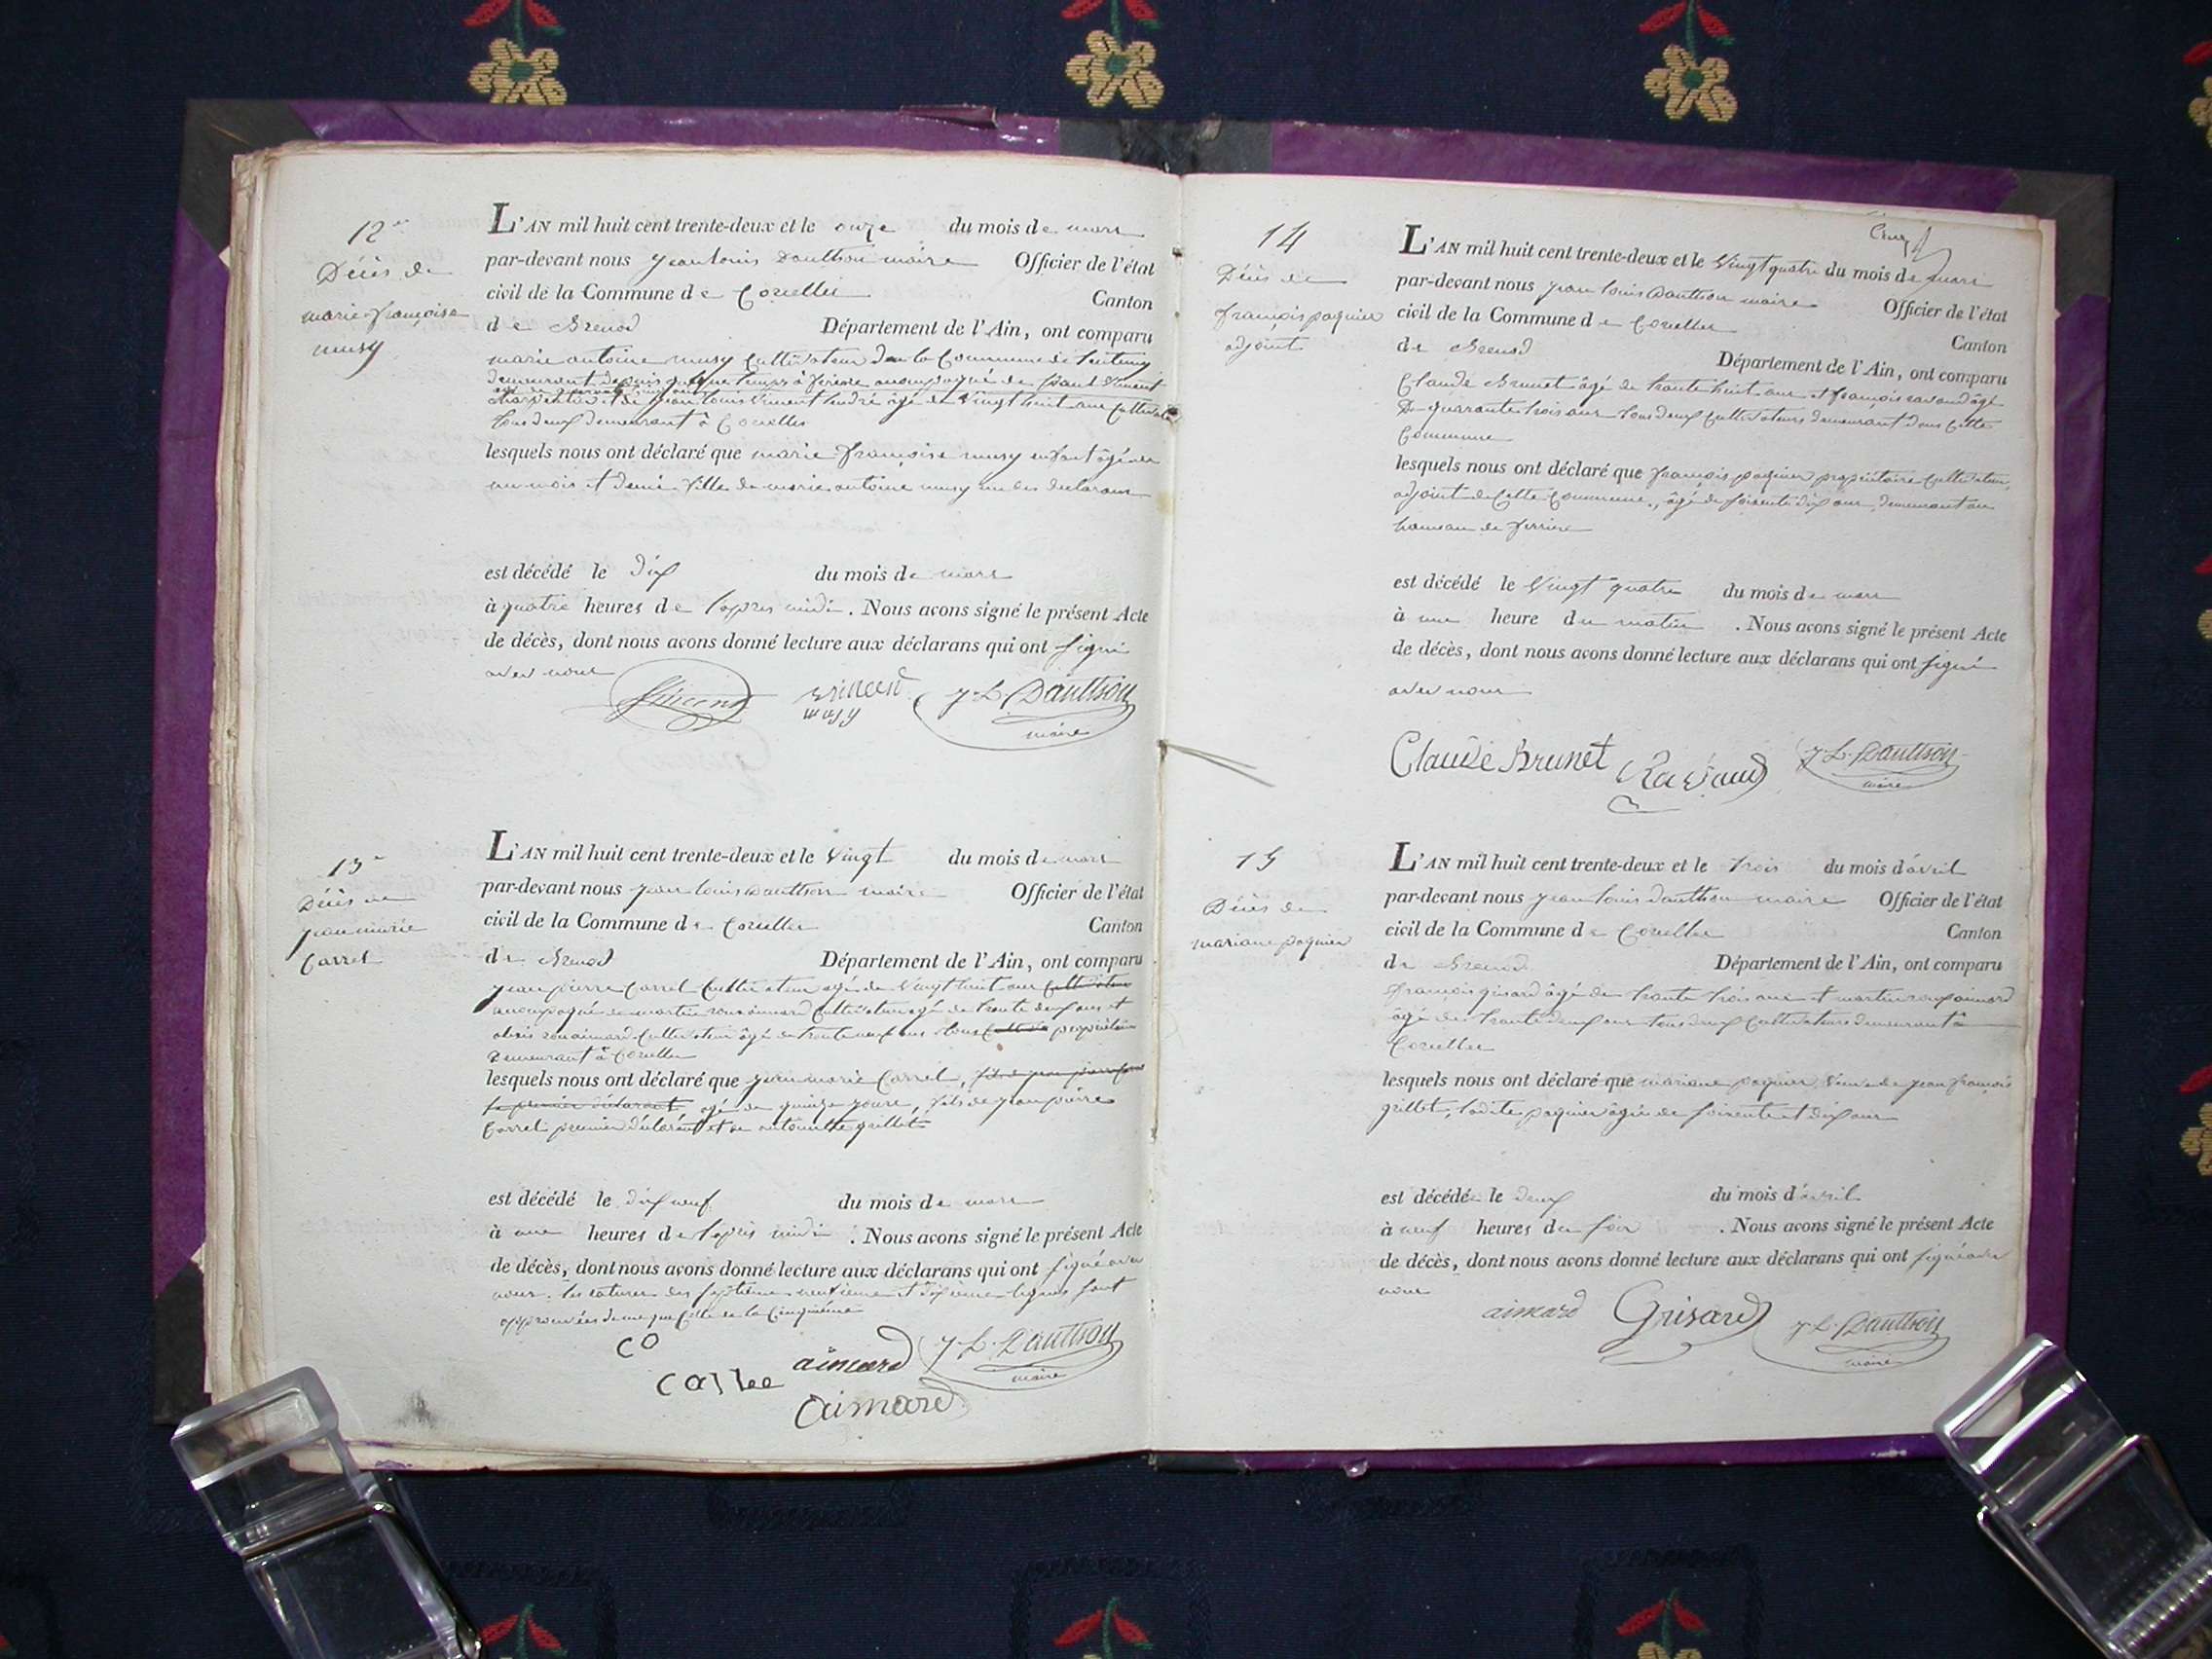 12
Décès de
marie françoise
musy
L'AN mil huit cent trente-deux et le onze du mois de mars
par-devant nous jean louis Dauthon maire Officier de l'état
civil de la Commune de Corcelles Canton
de Brenod Département de l'Ain, ont comparu
marie antoine musy Cultivateur de la Commune de
demeurant depuis quelque temps à ferriere accompagné de
et de jean louis Vincent âgé de Vingt huit ans Cultivateur
tous deux demeurant à Corcelles
lesquels nous ont déclaré que marie françoise musy enfant âgée de
un mois et demi fille de marie antoine musy un des declarans
est décédé le dix du mois de mars
à quatre heures de l'apres midi. Nous avons signé le présent Acte
de décès, dont nous avons donné lecture aux déclarans qui ont signé
avec nous
Vincent vincent J. L. Dauthon
musy maire
13
Décès de
jean marie
Carrel
L'AN mil huit cent trente-deux et le Vingt du mois de mars
par-devant nous jean louis Dauthon maire Officier de l'état
civil de la Commune de Corcelles Canton
de Brenod Département de l'Ain, ont comparu
jean pierre Carrel Cultivateur agé de Vingt huit ans Cultivateur
accompagné de martin Cultivateur agé de trente deux ans et
Cultivateur âgé de trente neuf ans tous propriétaires
demeurant à Corcelles
lesquels nous ont déclaré que jean marie Carrel, fils de jean pierre
le premier déclarant agé de quinze jours, fils de jean pierre
Carrel premier déclarant et de antoinette grillet
est décédé le dix neuf du mois de mars
à une heures de l'apres midi. Nous avons signé le présent Acte
de décès, dont nous avons donné lecture aux déclarans qui ont signé avec
nous. les ratures des septieme neuvieme et dixieme lignes sont
approuvées de meme que Celle de la Cinquième
co
aimard J. L. Dauthon
maire
aimard
Cinq
14
Décès de
françois paquier
adjoint
L'AN mil huit cent trente-deux et le Vingt quatre du mois de mars
par-devant nous jean louis Dauthon maire Officier de l'état
civil de la Commune de Corcelles Canton
de Brenod Département de l'Ain, ont comparu
Claude Brunet âgé de trente huit ans et françois ravaud âgé
de quarante trois ans tous deux Cultivateurs demeurant dans Cette
Commune
lesquels nous ont déclaré que françois paquier propriétaire Cultivateur,
adjoint de Cette Commune, âgé de soixante dix ans, demeurant au
hameau de ferriere
est décédé le Vingt quatre du mois de mars
à une heure du matin. Nous avons signé le présent Acte
de décès, dont nous avons donné lecture aux déclarans qui ont signé
avec nous
Claude Brunet Ravaud J. L. Dauthon
maire
15
Décès de
mariane paquier
L'AN mil huit cent trente-deux et le trois du mois d'avril
par-devant nous jean louis Dauthon maire Officier de l'état
civil de la Commune de Corcelles Canton
de Brenod Département de l'Ain, ont comparu
françois grisard âgé de trente trois ans et martin aimard
âgé de trente deux ans tous deux Cultivateurs demeurant à
Corcelles
lesquels nous ont déclaré que mariane paquier Veuve de jean françois
grillet, ladite paquier âgée de soixante et dix ans
est décédée le deux du mois d'avril
à neuf heures du soir. Nous avons signé le présent Acte
de décès, dont nous avons donné lecture aux déclarans qui ont signé avec
nous
aimard Grisard J. L. Dauthon
maire